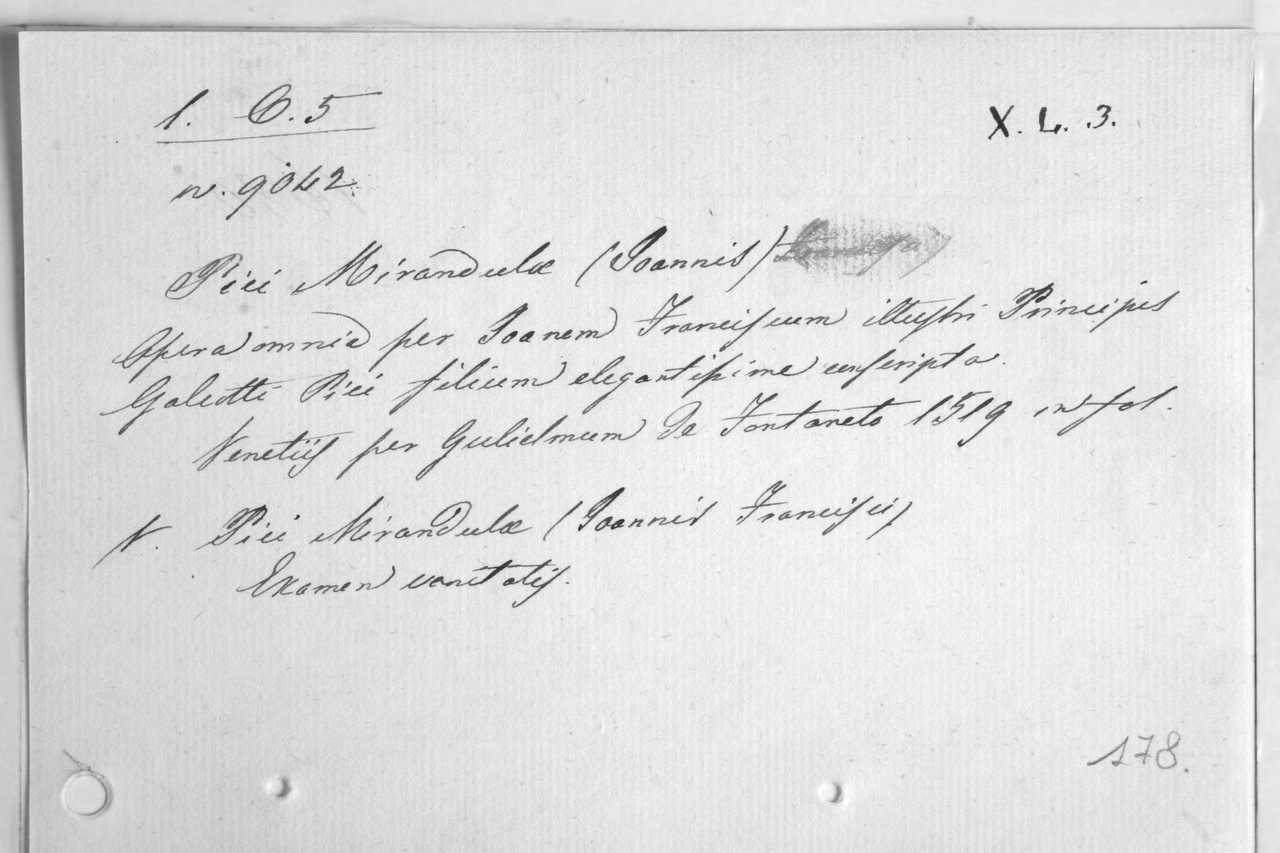 1. C. 5
X. L. 3.
n. 9042.
Pici Mirandulæ (Joannis)
Opera omnia per Joanem Franciscum illustri Principis
Galeotti Pici filium elegantissime conscripta.
Venetiis per Gulielmum de Fontaneto 1519 in fol.
N. Pici Mirandulæ (Joannis Francisci)
Examen vanitatis.
178.